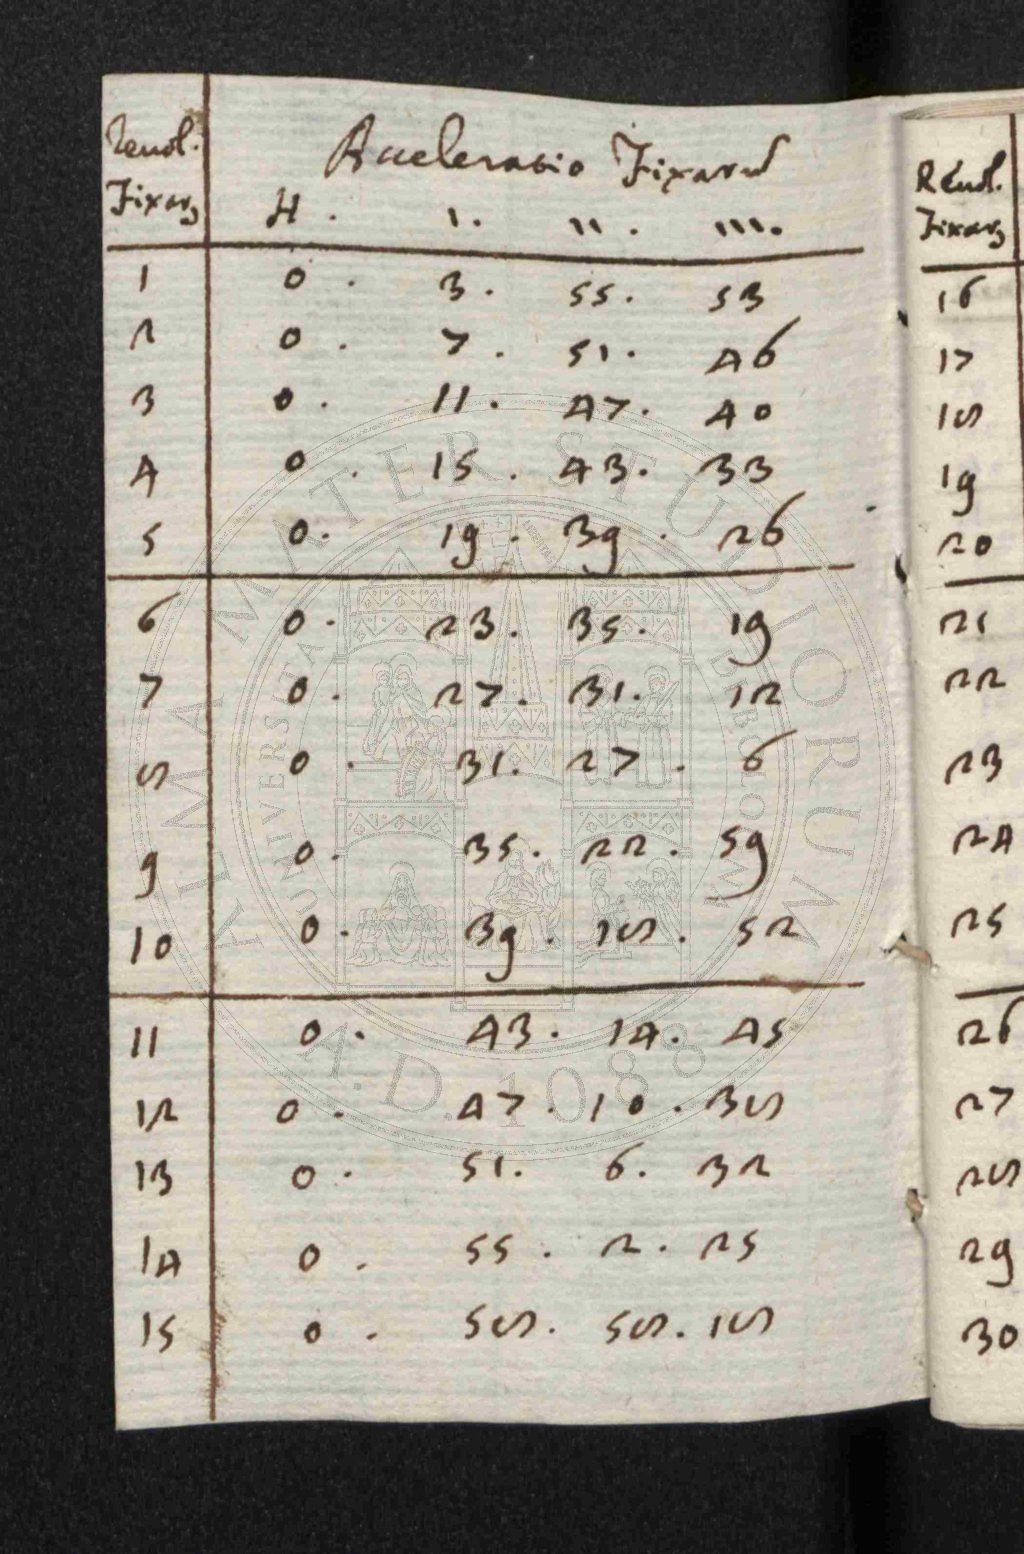 Revol. Acceleratio Fixarū
Fixarꝫ H. ı. ıı. ııı.
1 0. 3. 55. 53
2 0. 7. 51. 46
3 0. 11. 47. 40
4 0. 15. 43. 33
5 0. 19. 39. 26
6 0. 23. 35. 19
7 0. 27. 31. 12
8 0. 31. 27. 6
9 0. 35. 22. 59
10 0. 39. 18. 52
11 0. 43. 14. 45
12 0. 47. 10. 38
13 0. 51. 6. 32
14 0. 55. 2. 25
15 0. 58. 58. 18
Revol.
Fixarꝫ
16
17
18
19
20
21
22
23
24
25
26
27
28
29
30
ALMA MATER STUDIORUM
UNIVERSITAS BOLOGNA
A.D. 1088